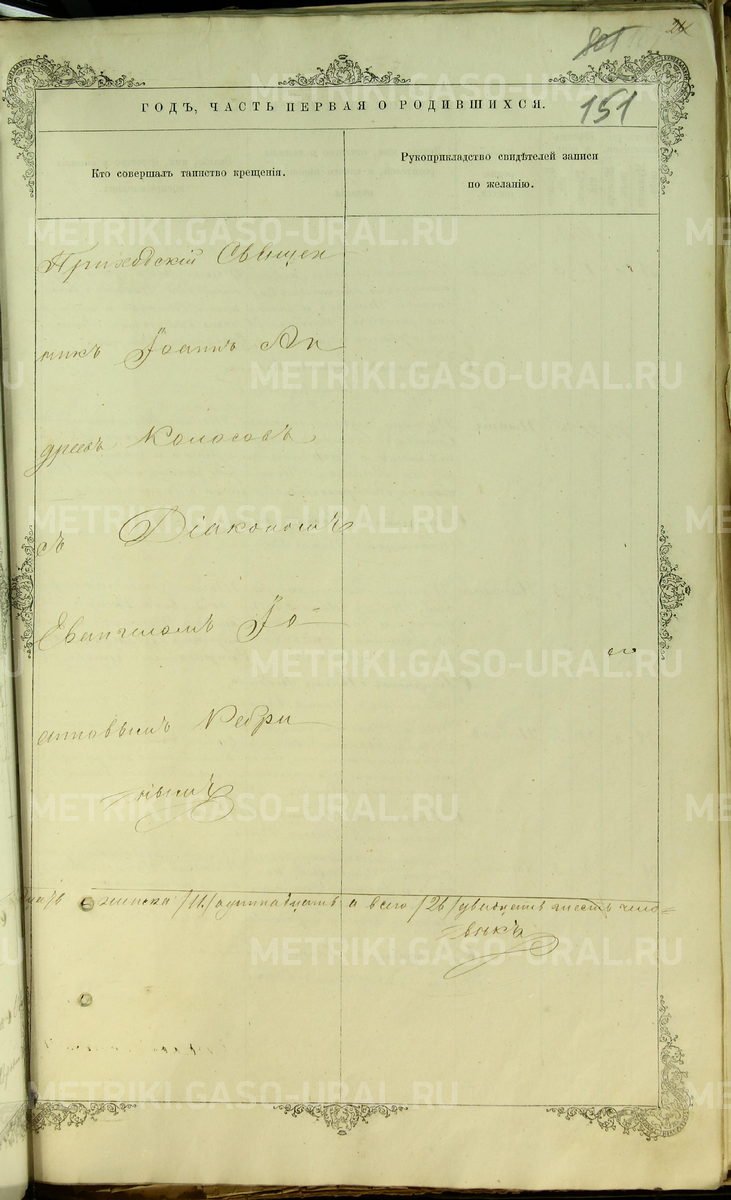 151
ГОДЪ, ЧАСТЬ ПЕРВАЯ О РОДИВШИХСЯ.
Кто совершалъ таинство крещенія.
Рукоприкладство свидѣтелей записи
по желанію.
Приходскій Священ
никъ Іоаннъ Ан
дреевъ Колосовъ
съ Діакономъ
Евангеломъ Іо
анновымъ Ребри
нымъ
женска /11/ одиннадцать а всего /26/ двадцать шесть чело=
вѣкъ
METRIKI.GASO-URAL.RU